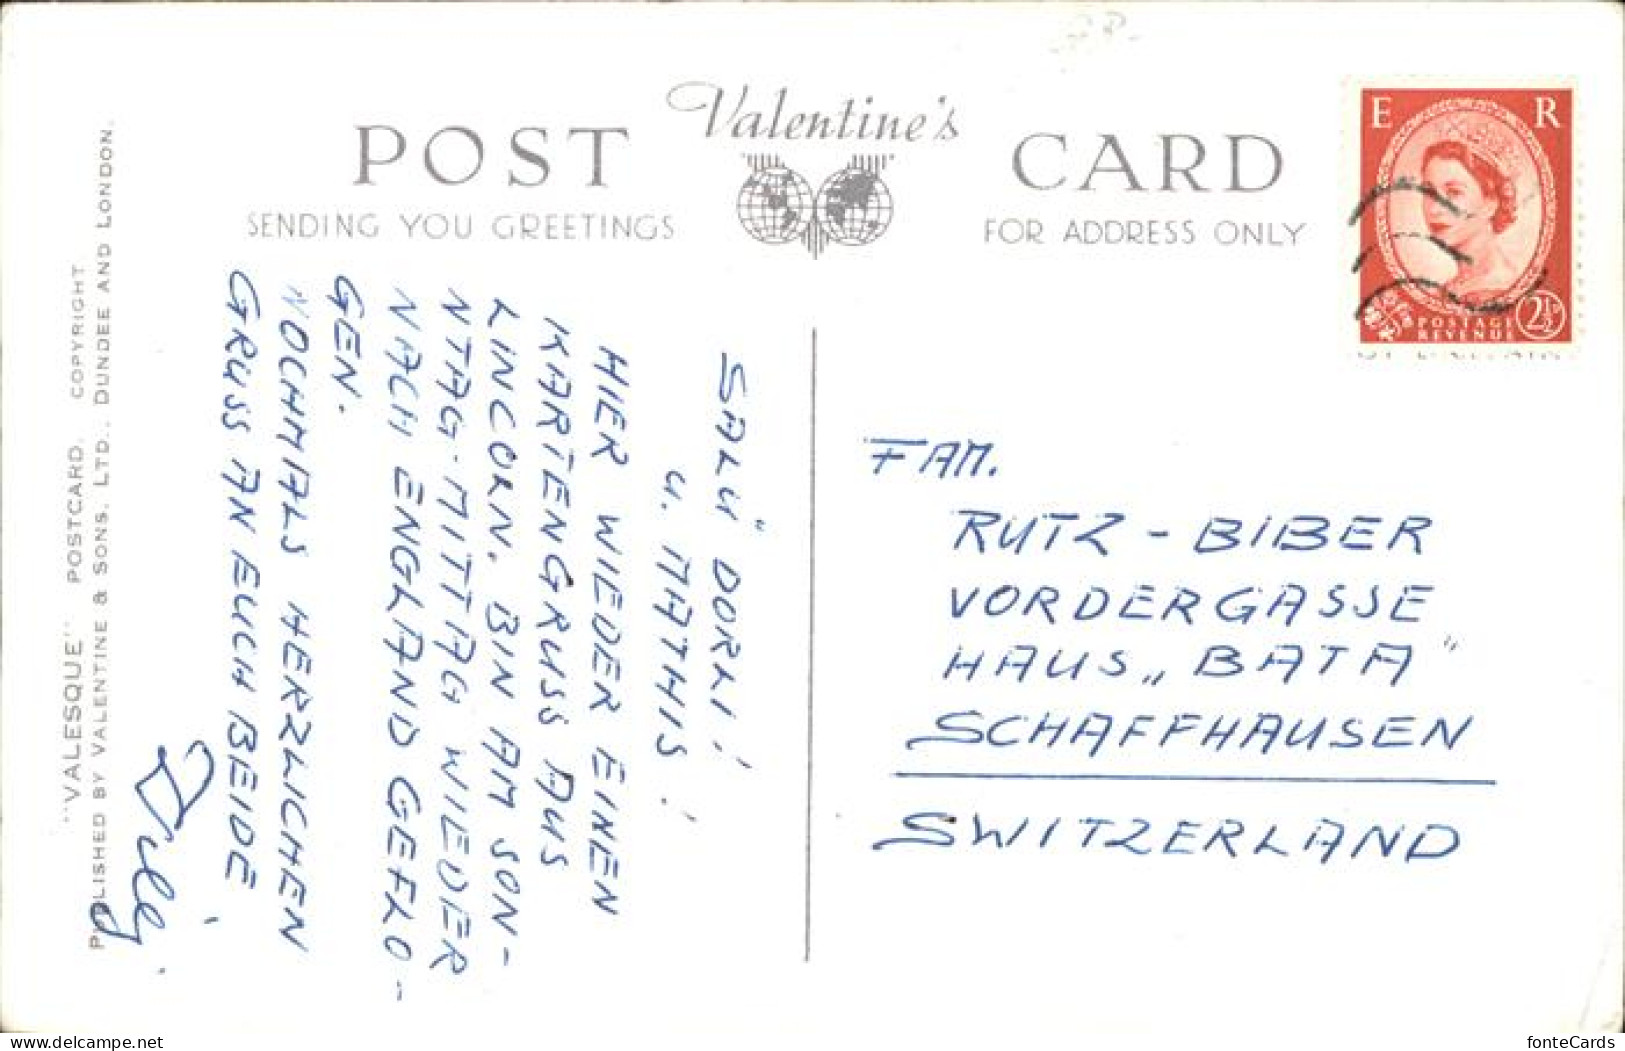 Valentine's
POST CARD
SENDING YOU GREETINGS
FOR ADDRESS ONLY
E R
POSTAGE
REVENUE
2½D
SALÜ DORLI!
U. MATHIS!
HIER WIEDER EINEN
KARTENGRUSS AUS
LINCOLN. BIN AM SON-
NTAG-MITTAG WIEDER
NACH ENGLAND GEFLO-
GEN.
NOCHMALS HERZLICHEN
GRUSS AN EUCH BEIDE
FAM.
RUTZ - BIBER
VORDERGASSE
HAUS „BATA"
SCHAFFHAUSEN
SWITZERLAND
"VALESQUE" POSTCARD. COPYRIGHT
PUBLISHED BY VALENTINE & SONS, LTD., DUNDEE AND LONDON.
www.delcampe.net
fonteCards